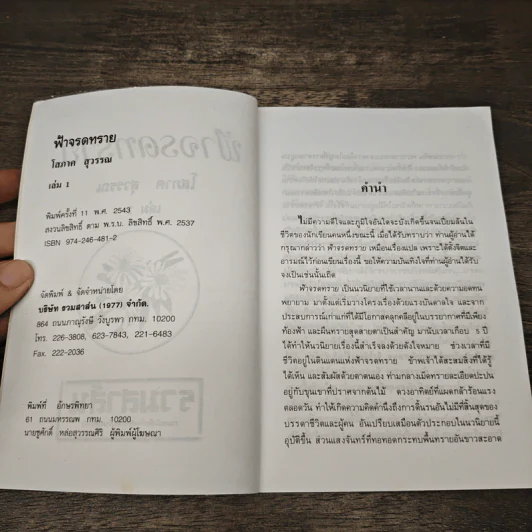 ฟ้าจรดทราย
โสภาค สุวรรณ
เล่ม 1
พิมพ์ครั้งที่ 11 พ.ศ. 2543
สงวนลิขสิทธิ์ ตาม พ.ร.บ. ลิขสิทธิ์ พ.ศ. 2537
ISBN 974-246-481-2
จัดพิมพ์ & จัดจำหน่ายโดย
บริษัท รวมสาส์น (1977) จำกัด.
864 ถนนภาณุรังษี วังบูรพา กทม. 10200
โทร. 226-3808, 623-7843, 221-6483
Fax. 222-2036
พิมพ์ที่ อักษรพิทยา
61 ถนนมหรรณพ กทม. 10200
นายชูศักดิ์ หล่อสุวรรณศิริ ผู้พิมพ์ผู้โฆษณา
คำนำ
ไม่มีความดีใจและภูมิใจอันใดจะบังเกิดขึ้นจนเปี่ยมล้นใน
ชีวิตของนักเขียนคนหนึ่งขณะนี้ เมื่อได้รับทราบว่า ท่านผู้อ่านได้
กรุณากล่าวว่า ฟ้าจรดทราย เหมือนเรื่องแปล เพราะได้ตั้งจิตและ
อารมณ์ไว้ก่อนเขียนเรื่องนี้ ขอให้ความบันเทิงใจที่ท่านผู้อ่านได้รับ
จงเป็นเช่นนั้นเถิด
ฟ้าจรดทราย เป็นนวนิยายที่ใช้เวลานานและด้วยความอดทน
พยายาม มาตั้งแต่เริ่มวางโครงเรื่องด้วยแรงบันดาลใจ และจาก
ประสบการณ์เก่าแก่ที่ได้มีโอกาสคลุกคลีอยู่ในบรรยากาศที่มีเพียง
ท้องฟ้า และผืนทรายสุดสายตาเป็นสำคัญ มานับเวลาเกือบ ๕ ปี
ได้ทำให้นวนิยายเรื่องนี้สำเร็จลงด้วยดังใจหมาย ช่วงเวลาที่มี
ชีวิตอยู่ในดินแดนแห่งฟ้าจรดทราย ข้าพเจ้าได้สะสมสิ่งที่ได้รู้
ได้เห็น และสัมผัสด้วยตาตนเอง ท่ามกลางเม็ดทรายละเอียดปะปน
อยู่กับขุนเขาที่ปราศจากต้นไม้ ดวงอาทิตย์ที่แผดกล้าร้อนแรง
ตลอดวัน ทำให้เกิดความคิดคำนึงถึงการดิ้นรนอันไม่มีที่สิ้นสุดของ
บรรดาชีวิตและผู้คน อันเปรียบเสมือนตัวประกอบในนวนิยายนี้
อุบัติขึ้น ส่วนแสงจันทร์ที่ทอทอดกระทบพื้นทรายอันขาวสะอาด